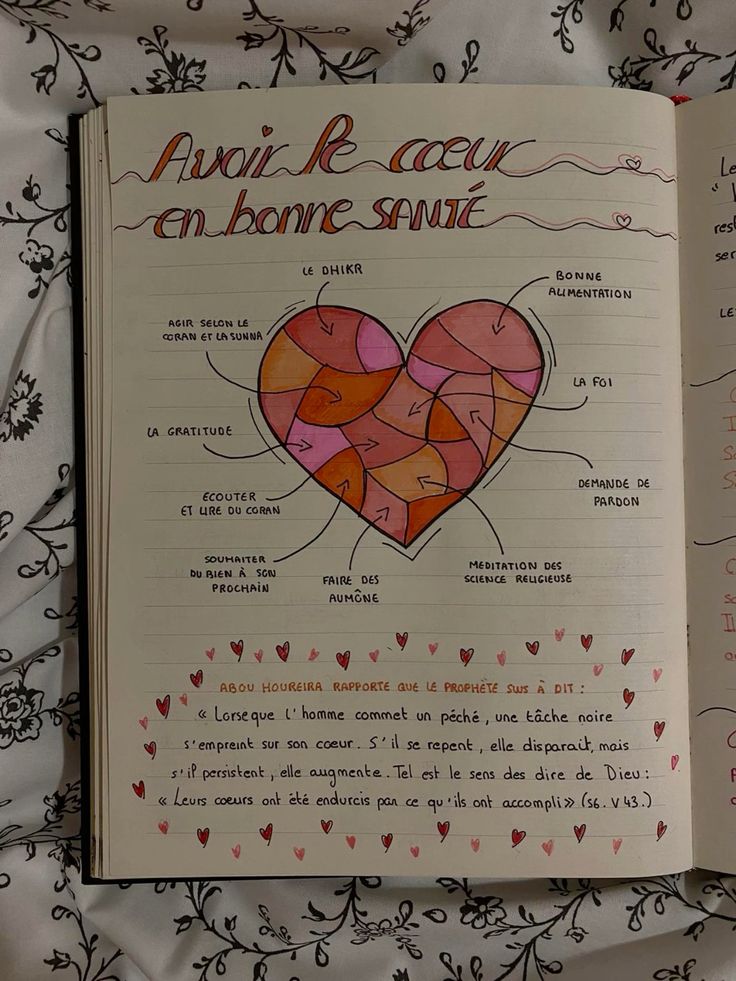 Avoir le cœur
en bonne SANTÉ
LE DHIKR
BONNE
ALIMENTATION
AGIR SELON LE
CORAN ET LA SUNNA
LA FOI
LA GRATITUDE
DEMANDE DE
PARDON
ÉCOUTER
ET LIRE DU CORAN
SOUHAITER
DU BIEN À SON
PROCHAIN
FAIRE DES
AUMÔNE
MEDITATION DES
SCIENCE RELIGIEUSE
ABOU HOUREIRA RAPPORTE QUE LE PROPHÈTE SWS À DIT :
« Lorseque l'homme commet un péché, une tâche noire
s'empreint sur son coeur. S'il se repent, elle disparait, mais
s'il persistent, elle augmente. Tel est le sens des dire de Dieu :
« Leurs coeurs ont été endurcis par ce qu'ils ont accompli » (S6. V 43.)